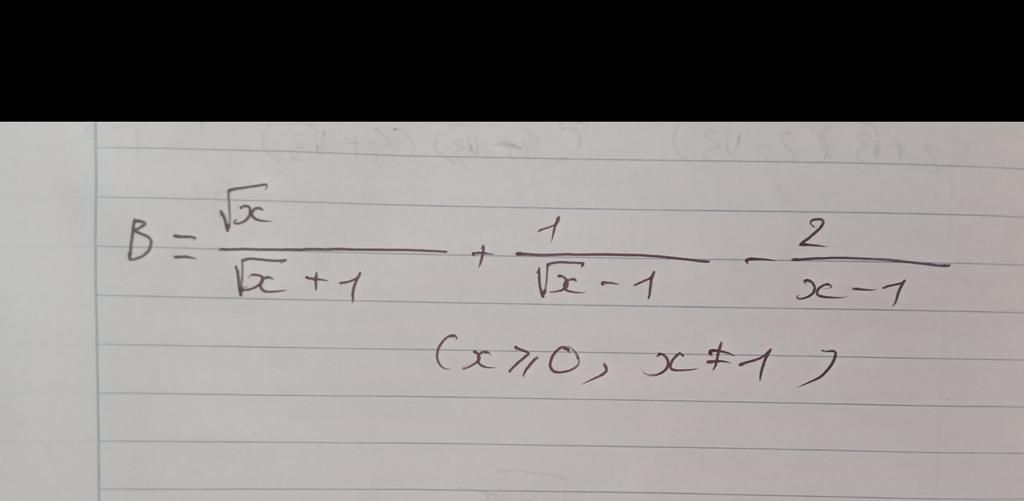 B = √x / (√x + 1) + 1 / (√x - 1) - 2 / (x - 1)
(x ⩾ 0, x ≠ 1)